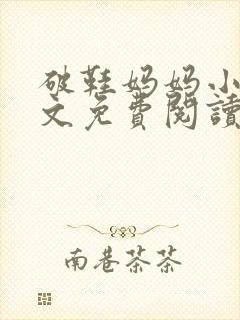 破鞋妈妈小
文免費閱讀
南巷茶茶